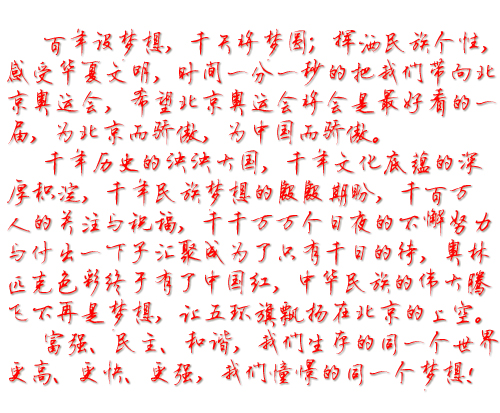 百年设梦想，千天将梦圆；挥洒民族个性，
感受华夏文明，时间一分一秒的把我们带向北
京奥运会，希望北京奥运会将会是最好看的一
届，为北京而骄傲，为中国而骄傲。
千年历史的泱泱大国，千年文化底蕴的深
厚积淀，千年民族梦想的殷殷期盼，千百万
人的关注与祝福，千千万万个日夜的不懈努力
与付出一下子汇聚成为了只有千日的待，奥林
匹克色彩终于有了中国红，中华民族的伟大腾
飞不再是梦想，让五环旗飘扬在北京的上空。
富强、民主、和谐，我们生存的同一个世界
更高、更快、更强，我们憧憬的同一个梦想！